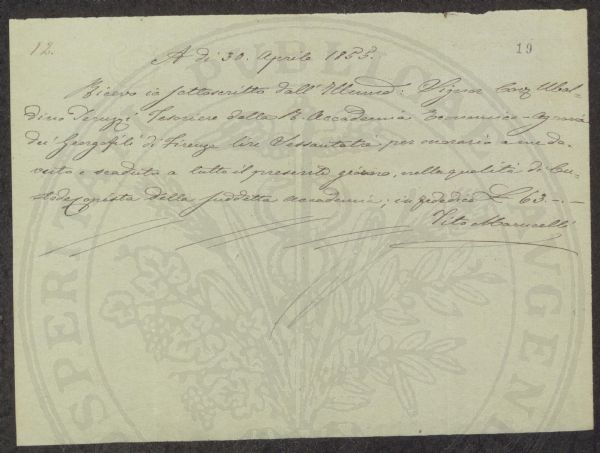 12.
19
A di 30. Aprile 1855.
Ricevo io sottoscritto dall' Illumo: Signor Cav: Ubal-
dino Peruzzi Tesoriere della R. Accademia Economico-Agraria
dei Georgofili di Firenze lire Sessantatre per onorario a me do-
vuto e scaduto a tutto il presente giorno, nella qualità di Cu-
stode e Copista della suddetta Accademia; in fede dico £ 63.-.-
Vito Marucelli
PROSPERITA PUBBLICA